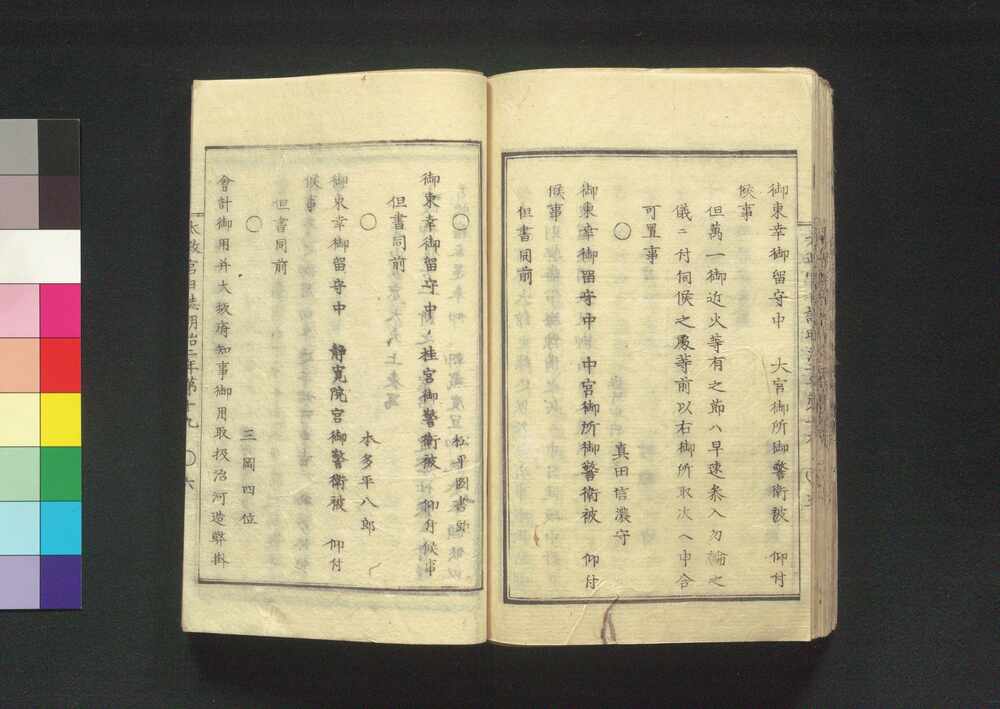 御東幸御留守中　大宮御所御警衛被　仰付
候事
但萬一御近火等有之節ハ早速参入勿論之
儀ニ付伺候之處等前以右御所取次ヘ申合
可置事
〇　真田信濃守
御東幸御留守中　中宮御所御警衛被　仰付
候事
但書同前
〇　松平図書頭
御東幸御留守中　桂宮御警衛被　仰付候事
但書同前
〇　本多平八郎
御東幸御留守中　静寛院宮御警衛被　仰付
候事
但書同前
〇　三岡四位
會計御用并大坂府知事御用取扱治河造弊掛
太政官日誌明治二年第十九　〇六